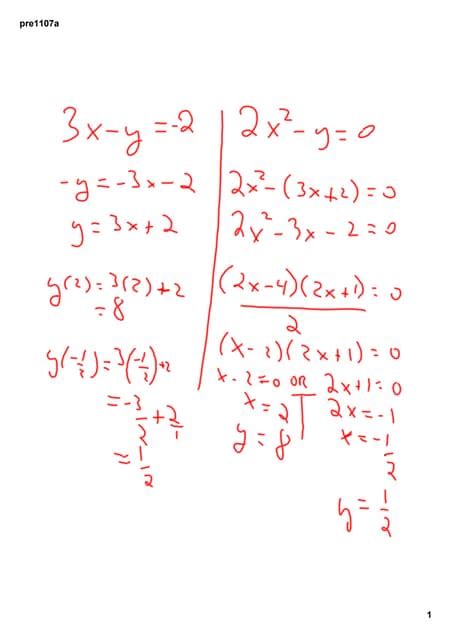 pre1107a
3x-y=-2
-y=-3x-2
y=3x+2
y(2)=3(2)+2
=8
y(-1/2)=3(-1/2)+2
=-3/2+2/1
=1/2
2x²-y=0
2x²-(3x+2)=0
2x²-3x-2=0
(2x-4)(2x+1)/2=0
(x-2)(2x+1)=0
x-2=0 OR 2x+1=0
x=2 2x=-1
y=8 x=-1/2
y=1/2
1